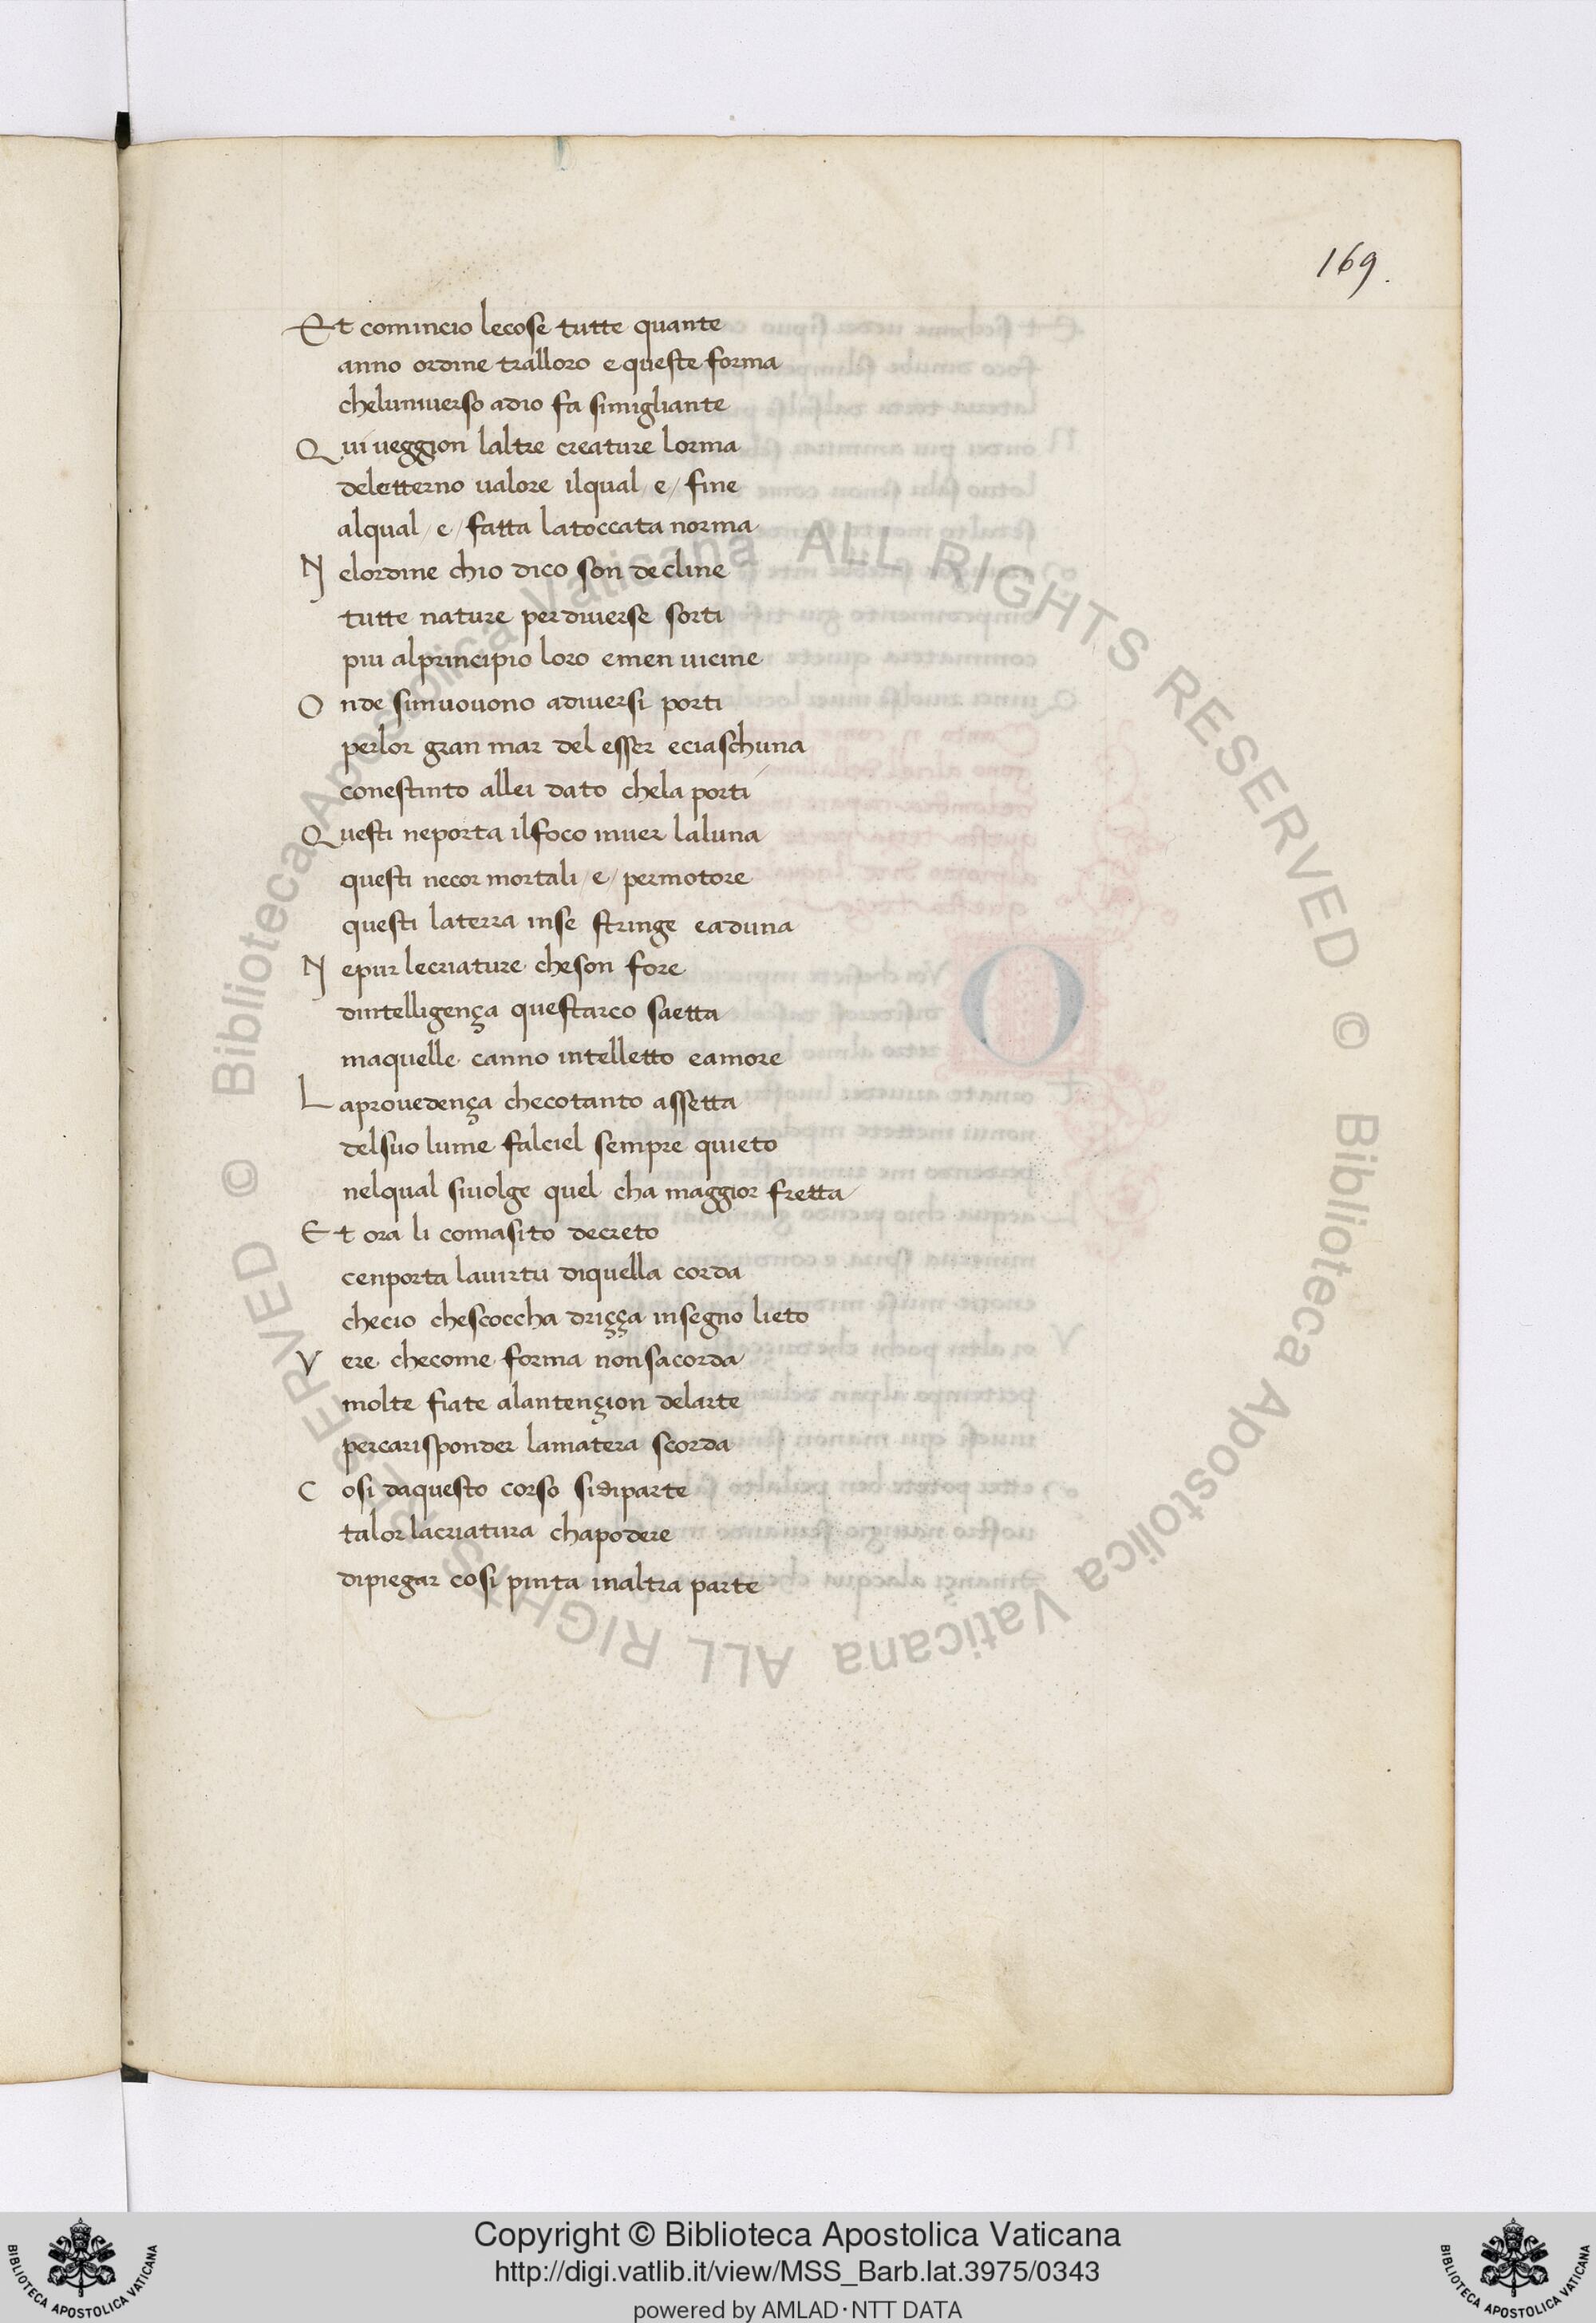 169.
Et comincio lecose tutte quante
anno ordine tralloro e queste forma
cheluniuerso adio fa simigliante
Qui ueggion laltre creature lorma
deletterno ualore ilqual / e / fine
alqual / e / fatta latoccata norma
Nelordine chio dico son decline
tutte nature perdiuerse sorti
piu alprincipio loro emen uicine
Onde simuouono adiuersi porti
perlor gran mar del esser eciaschuna
conestinto allei dato chela porti
Questi neporta ilfoco inuer laluna
questi necor mortali / e / permotore
questi laterra inse stringe eaduna
Nepur lecriature cheson fore
dintelligença questarco saetta
maquelle canno intelletto eamore
Laprouedença checotanto assetta
delsuo lume falciel sempre quieto
nelqual siuolge quel cha maggior fretta
Et ora li comasito decreto
cenporta lauirtu diquella corda
checio chescoccha driçça insegno lieto
Vere checome forma nonsacorda
molte fiate alantençion delarte
percarisponder lamatera scorda
Cosi daquesto corso sidiparte
talor lacriatura chapodere
dipiegar cosi pinta inaltra parte
© Biblioteca Apostolica Vaticana ALL RIGHTS RESERVED © Biblioteca Apostolica Vaticana ALL RIGHTS RESERVED
Copyright © Biblioteca Apostolica Vaticana
http://digi.vatlib.it/view/MSS_Barb.lat.3975/0343
powered by AMLAD·NTT DATA
BIBLIOTECA APOSTOLICA VATICANA
BIBLIOTECA APOSTOLICA VATICANA